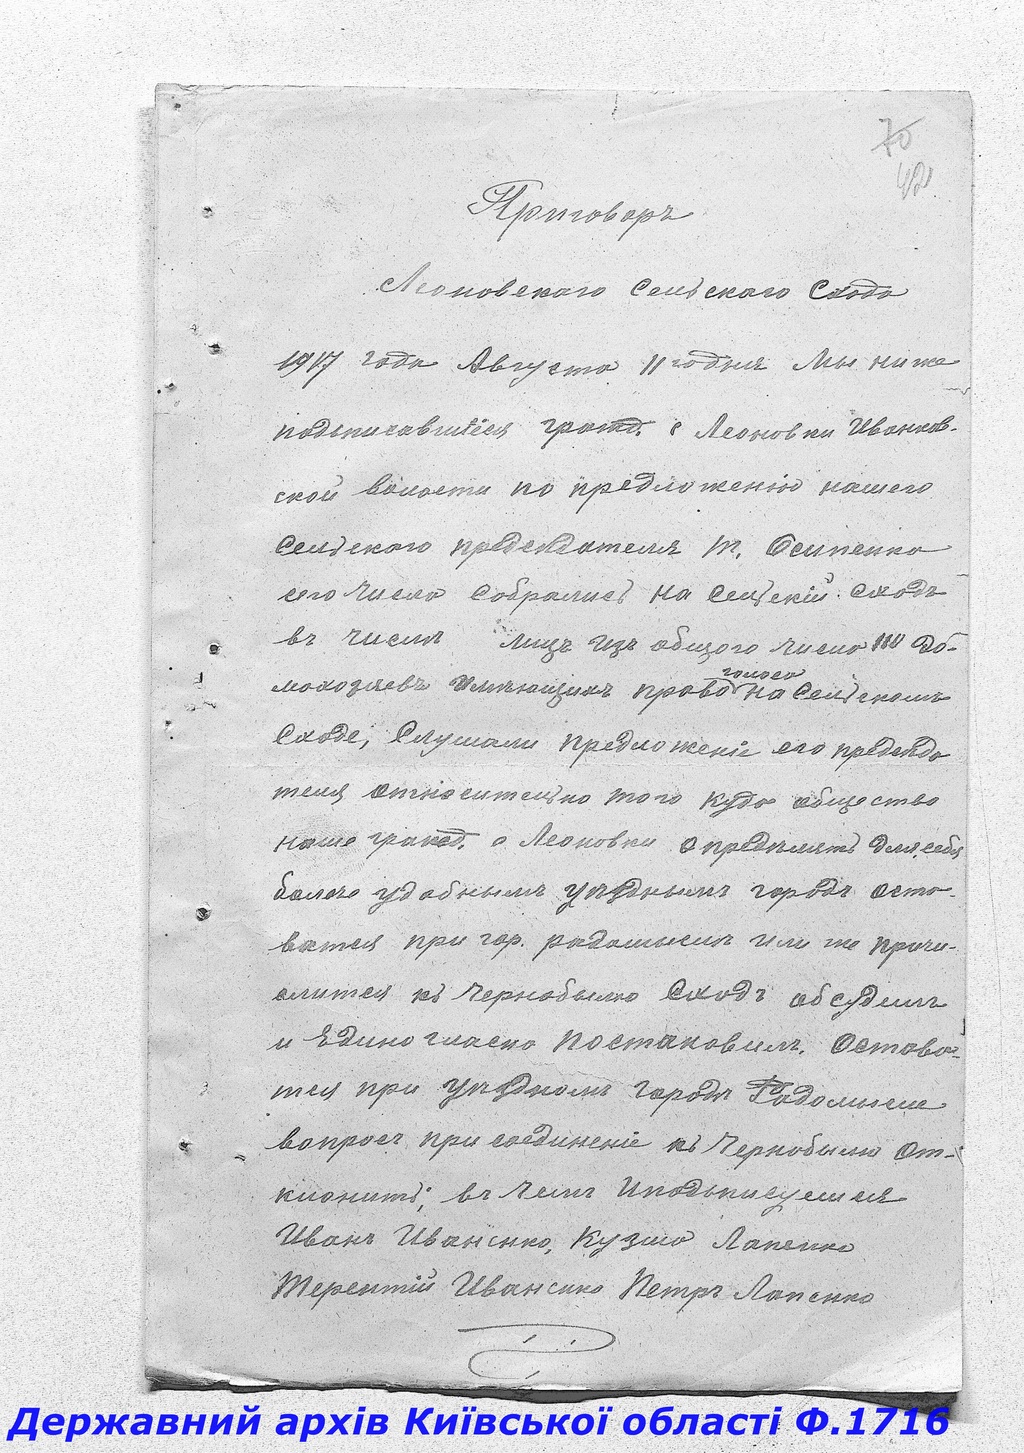 70
42
Приговоръ
Леоновского Сельского Схода
1917 года Августа 11го дня Мы ниже
подписавшіеся гражд. с Леоновки Иванков-
ской волости по предложенію нашего
Сельского председателя Т. Осипенко
сего числа собрались на сельскій сходъ
въ числѣ лицъ изъ общого числа 110 до-
мохозяевъ имѣющихъ право голоса на Сельскомъ
Сходе, Слушали предложеніе его председа
теля относительно того куда общество
наше гражд. с Леоновки опредѣлятъ для себя
более удобнымъ уѣзднымъ городъ оста-
ватся при гор. радомыслѣ или же причи-
слится къ Чернобылю Сходъ обсудилъ
и Единогласно постановилъ. Остава-
тся при уѣздномъ городѣ Радомысле
вопросъ присоединеніе къ Чернобылю От-
клонить; въ чемъ и подписуемся
Иванъ Иваненко, Кузмо Лапенко
Терентій Иваненко Петръ Лапенко
Державний архів Київської області Ф.1716